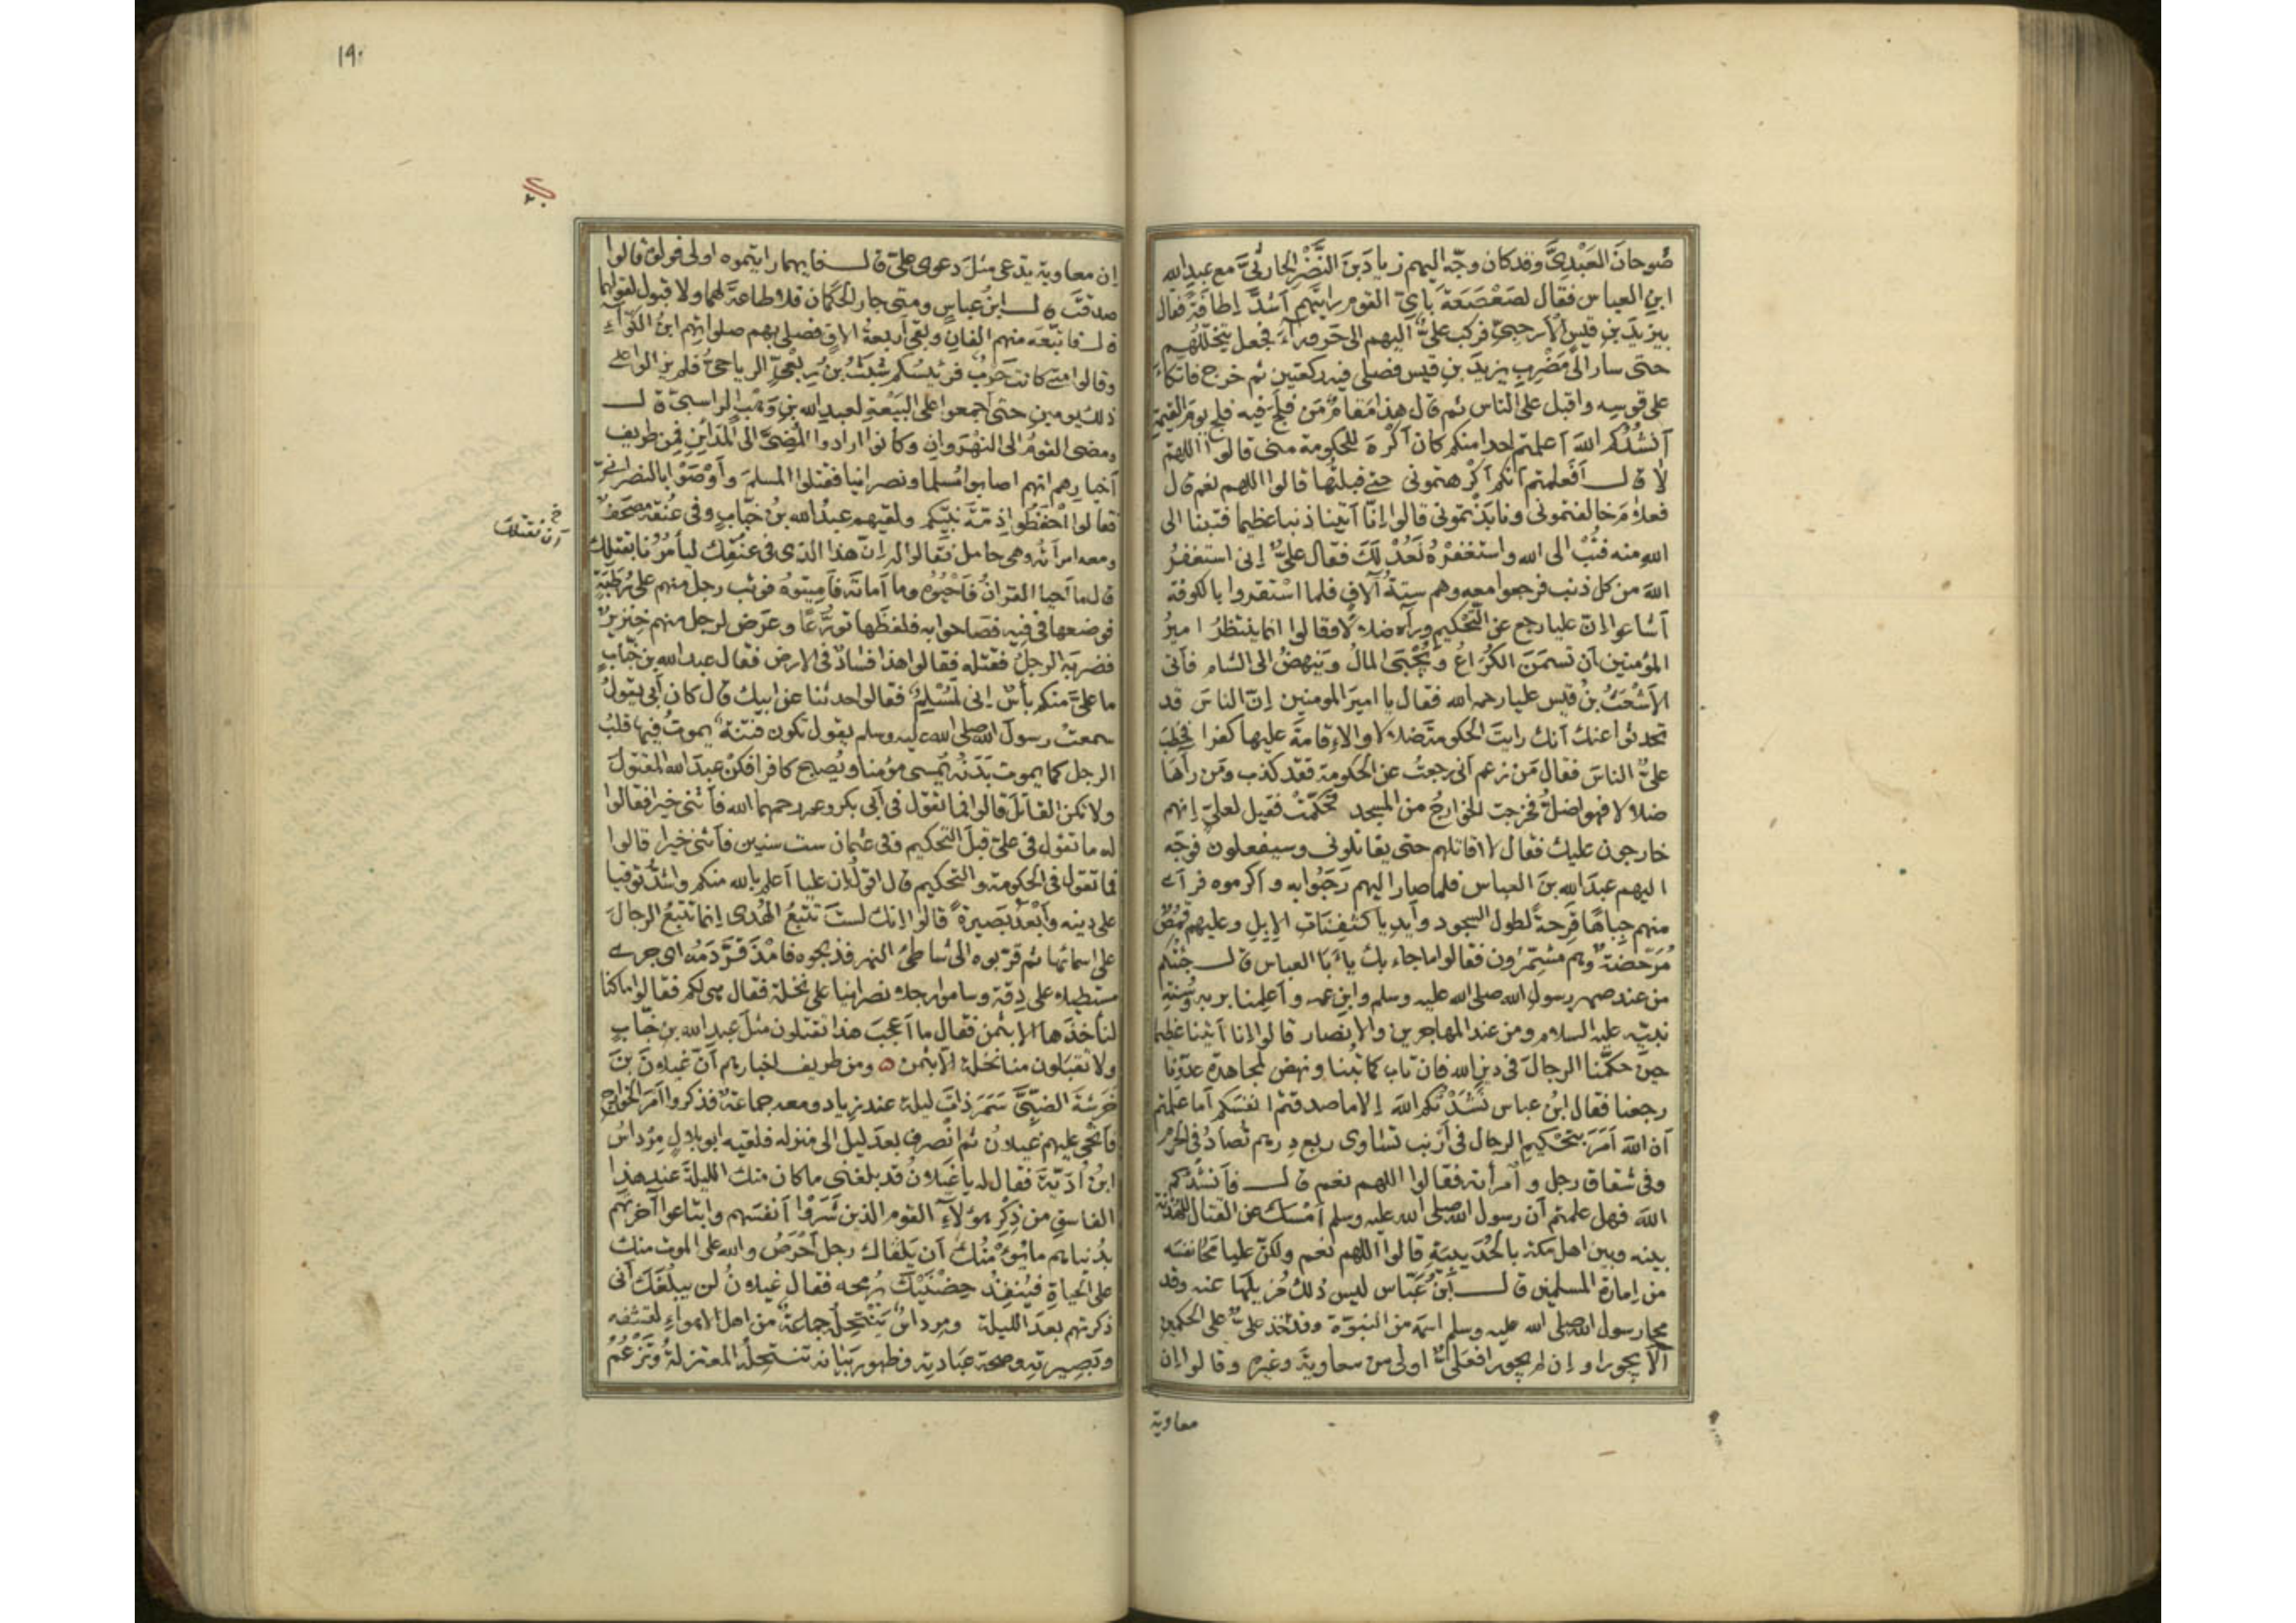 صُوحانَ العَبْدِيَّ وقد كان وجّه اليهم زيادَ بنَ النَّضْرِ الحارثيَّ مع عبدِ الله
ابنِ العباس فقال لصَعْصَعَةَ بايّ القوم رايتَهم اَشدَّ اِطافةً فقال
بيزيدَ بنِ قيسٍ الاَرحبىّ فركب علىٌّ اليهم الى حَروراءَ فجعل يتخلّلهم
حتى سار الى مَضْرِبِ يزيدَ بنِ قيس فصلى فيه ركعتين ثم خرج فاتكاَ
على قوسِه واقبل على الناس ثم قال هذا مَقامٌ مَن فَلَجَ فيه فلج يومَ القيمة
اَنشُدُكم اللهَ اَعلمتم احدا منكم كان اَكْرهَ للحكومة منى قالوا اللهم
لا قال اَفَعلمتم اَنكم اَكْرهتمونى حتى قبلتُها قالوا اللهم نعم قال
فعلامَ خالفتمونى ونابذتمونى قالوا اِنّا اَتينا ذنبا عظيما فتبنا الى
الله منه فتُبْ الى الله واستغفرْهُ نَعُدْ لَكَ فقال علىٌّ اِنى استغفرُ
اللهَ من كل ذنب فرجعوا معه وهم ستةُ آلافٍ فلما اسْتقروا بالكوفة
اَشاعوا اِنّ عليا رجع عن التَّحْكيم ورآه ضلالا وقالوا انما ينتظرُ امير
المؤمنين اَن تسمَنَ الكُرَاعُ وتُجْبَى المالُ ويَنهضُ الى الشام فاَتى
الاَشْعَثُ بنُ قيس عليا رحمه الله فقال يا اميرَ المومنين اِنّ الناسَ قد
تحدثوا عنك اَنك رايتَ الحكومةَ ضلالا والاِقامةَ عليها كفرا فخطبَ
علىٌّ الناسَ فقال مَن زعم اَنى رجعتُ عن الحكومة فقد كذب ومن رآها
ضلالا فهو اضلُّ فخرجت الخوارجُ من المسجد فحكّمَتْ فقيل لعلىّ اِنهم
خارجون عليك فقال لا اقاتلهم حتى يقاتلونى وسيفعلون فوجّه
اليهم عبدَ اللهِ بنَ العباس فلما صار اليهم رَحَّبوا به واكرموه فرآى
منهم جِباهًا قَرِحةً لطول السجود واَيديا كثَفِنَاتِ الاِبِلِ وعليهم قمُصٌ
مُرَحّضةٌ وهم مشمِّرون فقالوا ما جاء بك يا اَبا العباس قال جئتُكم
من عند صهر رسول الله صلى الله عليه وسلم وابنِ عمه واَعلِمنا بربه وسُنةِ
نبيّه عليه السلام ومن عند المهاجرين والانصار قالوا اِنا اَتينا عظيما
حينَ حكّمْنا الرجالَ فى دين الله فان تاب كما تبنا ونهض لمجاهدة عدوّنا
رجعنا فقال ابنُ عباس نَشَدتُكم اللهَ اِلا ما صدقتم انفسَكم اَما علمتم
اَن اللهَ اَمَرَ بتحْكيمِ الرجال فى اَرْنب تساوى ربع درهم تصادُ فى الحَرم
وفى شقاق رجل وامرأته فقالوا اللهم نعم قال فاَنشُدُكم
اللهَ فهل علمتم اَن رسول الله صلى الله عليه وسلم اَمْسك عن القتال للهُدْنة
بينه وبين اهل مكة بالحُدَيبيةِ قالوا اللهم نعم ولكن عليا مَحا نفسَه
من اِمارة المسلمين قال ابنُ عَبّاس ليس ذلك مُزيلَها عنه وقد
محا رسول الله صلى الله عليه وسلم اسمَه من النبوّة وقد اَخذ علىٌّ على الحكمين
اَلّا يجورا واِن لم يجورا فعلىٌّ اولى من معاويةَ وغيره وقالوا اِن
معاوية
١٩٠
اِن معاوية يدّعى مثلَ دعوى علىّ قال فايهما رايتموه اولى فولّوه قالوا
صدقتَ قال ابنُ عباسٍ ومتى جار الحَكَمان فلا طاعةَ لهما ولا قبول لقولهما
قال فاتّبَعه منهم الفانِ وبقى اَربعةُ الافٍ فصلى بهم صلواتِهم ابنُ الكَوّاءِ
وقالوا متى كانت حَرْبٌ فرئيسُكم شَبَثُ بنُ رِبْعىّ الرياحىُّ فلم يزالوا على
ذلك يومين حتى اَجمعوا على البَيْعةِ لعبدِ الله بنِ وَهْبٍ الراسبىّ قال
ومضى القومُ الى النهْرَوانِ وكانوا ارادوا المُضِىَّ الى المَدَاينِ فمن طريف
اَخبارهم انهم اصابوا مُسلما ونصرانيا فقتلوا المسلمَ واَوْصَوْا بالنصرانىّ
فقالوا احْفَظوا ذِمّةَ نبيّكم ولقيهم عبدُ الله بنُ خَبّابٍ وفى عُنقه مصحَفٌ
ومعه امرأتُه وهى حامل فقالوا له اِنّ هذا الذى فى عنُقِك لياَمُرُنا بقتلِك
خ
اَن نقتلك
قال ما اَحيا القرانُ فاَحْيُوه وما اَماتَه فاَمِيتوهُ فوثب رجل منهم على رُطَبَةٍ
فوضعها فى فِيه فصاحوا به فلفظَها تورُّعًا وعَرَض لرجل منهم خِنزيرٌ
فضربَه الرجلُ فقتله فقالوا هذا فسادٌ فى الارض فقال عبدُ الله بن خبّابٍ
ما علىَّ منكم بأسٌ اِنى لَمُسْلِمٌ فقالوا حدثنا عن ابيك قال كان اَبى يقولُ
سمعتُ رسولَ الله صلى الله عليه وسلم يقول تكون فتنةٌ يموتُ فيها قلبُ
الرجل كما يموت بَدَنُه يُمسى مؤمنا ويُصبح كافرا فكنْ عبدَ الله المقتولَ
ولا تكن القاتلَ قالوا فما تقول فى اَبى بكر وعمر رحمهما الله فاَثنى خيرا فقالوا
له ما تقول فى علىّ قبلَ التحكيم وفى عثمان ست سنين فاَثنى خيرا قالوا
فما تقول فى الحكومة والتحكيم قال اقول اِن عليا اَعلم بالله منكم واشدُّ توقيا
على دينه واَبْعدُ بَصيرةً قالوا اِنك لستَ تتبعُ الهُدى اِنما تتبعُ الرجالَ
على اسمائها ثم قرّبوه الى شاطئ النهر فذبحوه فامْذَقَرَّ دَمُه اى جرى
مستطيلا على دِقة وساموا رجلا نصرانيا على نخلة فقال هى لكم فقالوا ما كنا
لناَخذَها الا بثمن فقال ما اَعجبَ هذا تقتلون مثلَ عبدِ الله بنِ خبّابٍ
ولا تقبلون منا نخلة الا بثمن ۞ ومن طريف اخبارهم اَنّ غيلانَ بنَ
خَرَشةَ الضبّىَّ سَمَرَ ذاتَ ليلة عند زياد ومعه جماعةٌ فذكروا اَمرَ الخوارج
فاَنحى عليهم غيلانُ ثم انصرف بعدَ ليل الى منزله فلقيه ابو بلالٍ مِرْداسُ
ابنُ اُدَيّةَ فقال له يا غَيلانُ قد بلغنى ما كان منك الليلةَ عند هذا
الفاسقِ من ذِكْرِ هؤلاءِ القوم الذين شَرَوْا اَنفسَهم وابتاعوا آخرتَهم
بدُنياهم ما يؤمّنُك اَن يَلقاك رجل اَحْرَصُ والله على الموت منك
على الحياةِ فيُنفِذَ حِضْنَيْكَ برُمحه فقال غيلانُ لن يبلُغَك اَنى
ذكرتهم بعدَ الليلة ومِرداسٌ تَنْتَحِلُه جماعةٌ من اهل الاهواءِ لقشفه
وبصيرتِه وصحة عبادته وظهور بيانه تنتحلُه المعتزلةُ وتَزْعُمُ